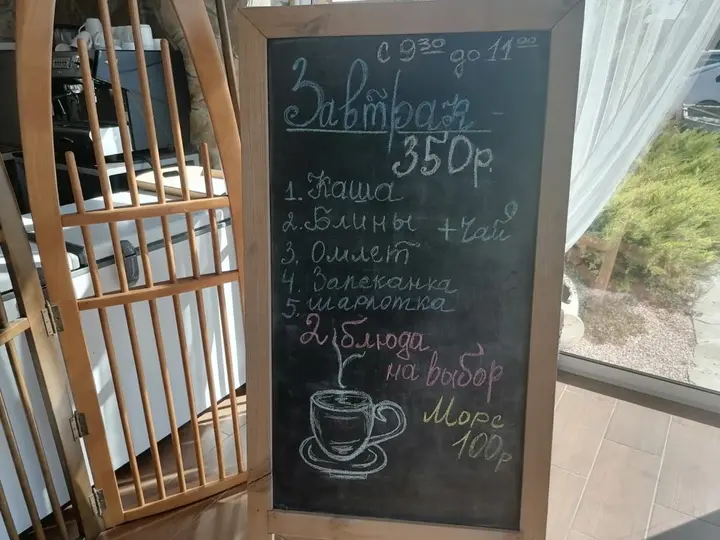 с 9³⁰ до 11⁰⁰
Завтрак
350р.
1. Каша
2. Блины + чай
3. Омлет
4. Запеканка
5. шарлотка
2 блюда
на выбор
Морс
100р